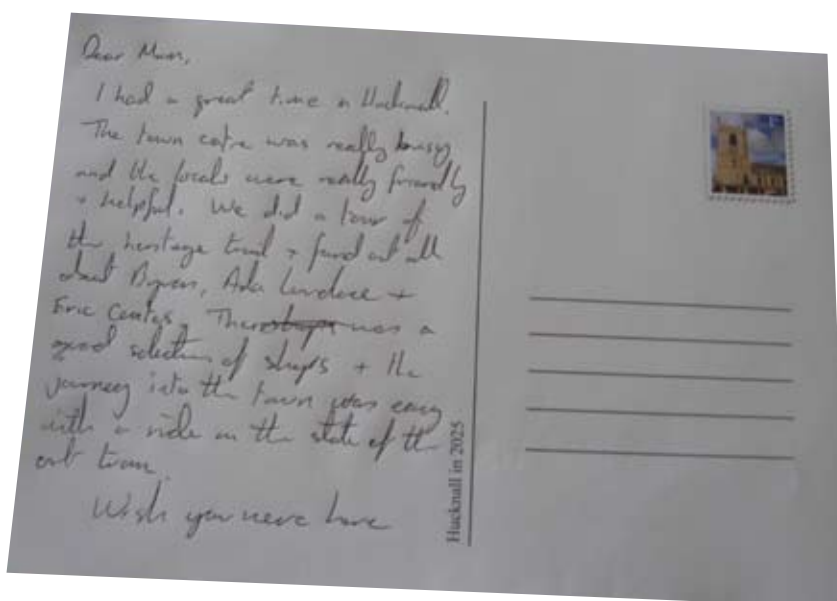 Dear Mum,
I had a great time in Hucknall.
The town centre was really busy
and the locals were really friendly
+ helpful. We did a tour of
the heritage trail + found out all
about Byron, Ada Lovelace +
Eric Coates. There was a
good selection of shops + the
journey into the town was easy
with a ride on the state of the
art tram.
Wish you were here
Hucknall in 2025